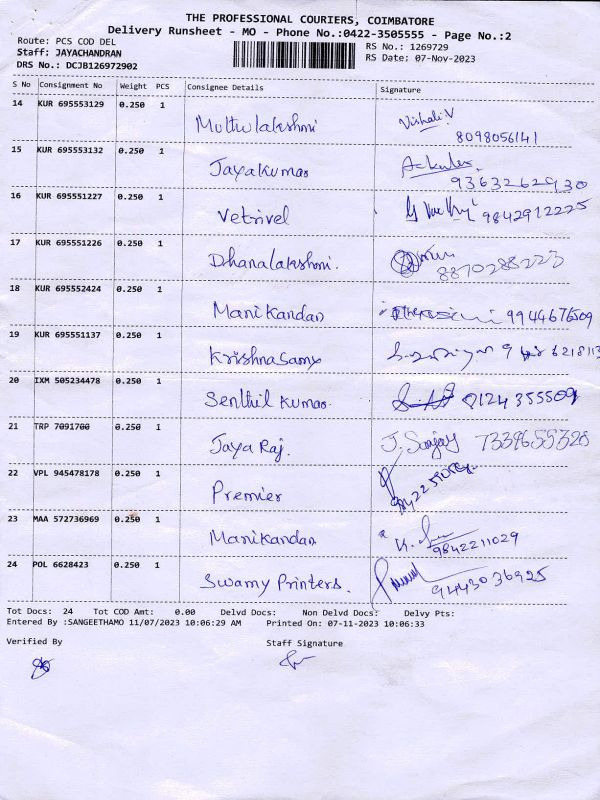 THE PROFESSIONAL COURIERS, COIMBATORE
Delivery Runsheet - MO - Phone No.:0422-3505555 - Page No.:2
Route: PCS COD DEL
RS No.: 1269729
Staff: JAYACHANDRAN
RS Date: 07-Nov-2023
DRS No.: DCJB126972902
S No Consignment No Weight PCS Consignee Details Signature
14 KUR 695553129 0.250 1 Muthulakshmi Vishali.V
8098056141
15 KUR 695553132 0.250 1 Jayakumar
9363262930
16 KUR 695551227 0.250 1 Vetrivel 9842912225
17 KUR 695551226 0.250 1 Dhanalakshmi. 8870288223
18 KUR 695552424 0.250 1 Manikandan 9944676509
19 KUR 695551137 0.250 1 Krishnasamy
20 IXM 505234478 0.250 1 Senthil Kumar. 8124355509
21 TRP 7091700 0.250 1 Jaya Raj. J. Sanjay 7339655328
22 VPL 945478178 0.250 1 Premier
23 MAA 572736969 0.250 1 Manikandan 9842211029
24 POL 6628423 0.250 1 Swamy Printers. 9443036925
Tot Docs: 24 Tot COD Amt: 0.00 Delvd Docs: Non Delvd Docs: Delvy Pts:
Entered By :SANGEETHAMO 11/07/2023 10:06:29 AM Printed On: 07-11-2023 10:06:33
Verified By Staff Signature